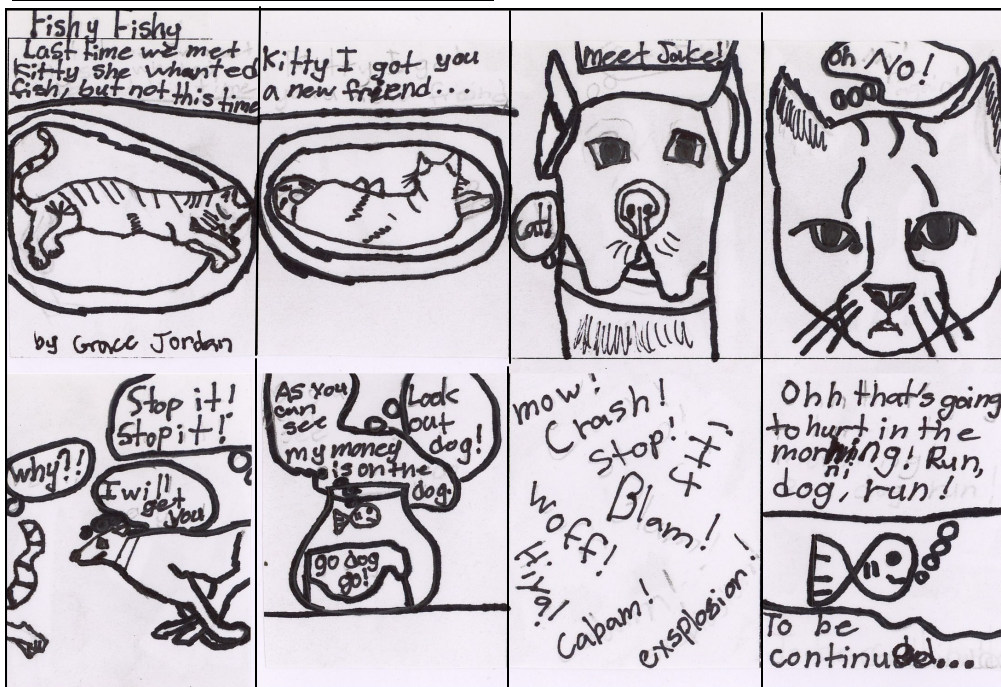 Fishy Fishy
Last time we met
Kitty she whanted
fish, but not this time
by Grace Jordan
Kitty I got you
a new friend...
Meet Jake!
Cat!
Oh No!
Stop it!
Stop it!
Why?!
I will
get
you
As you
can
see
my money
is on the
dog.
Look
out
dog!
go dog
go!
mow!
Crash!
Stop!
Blam!
woff!
Cabam!
exsplosion!
Ohh that's going
to hurt in the
morning! Run,
dog, run!
To be
continued...